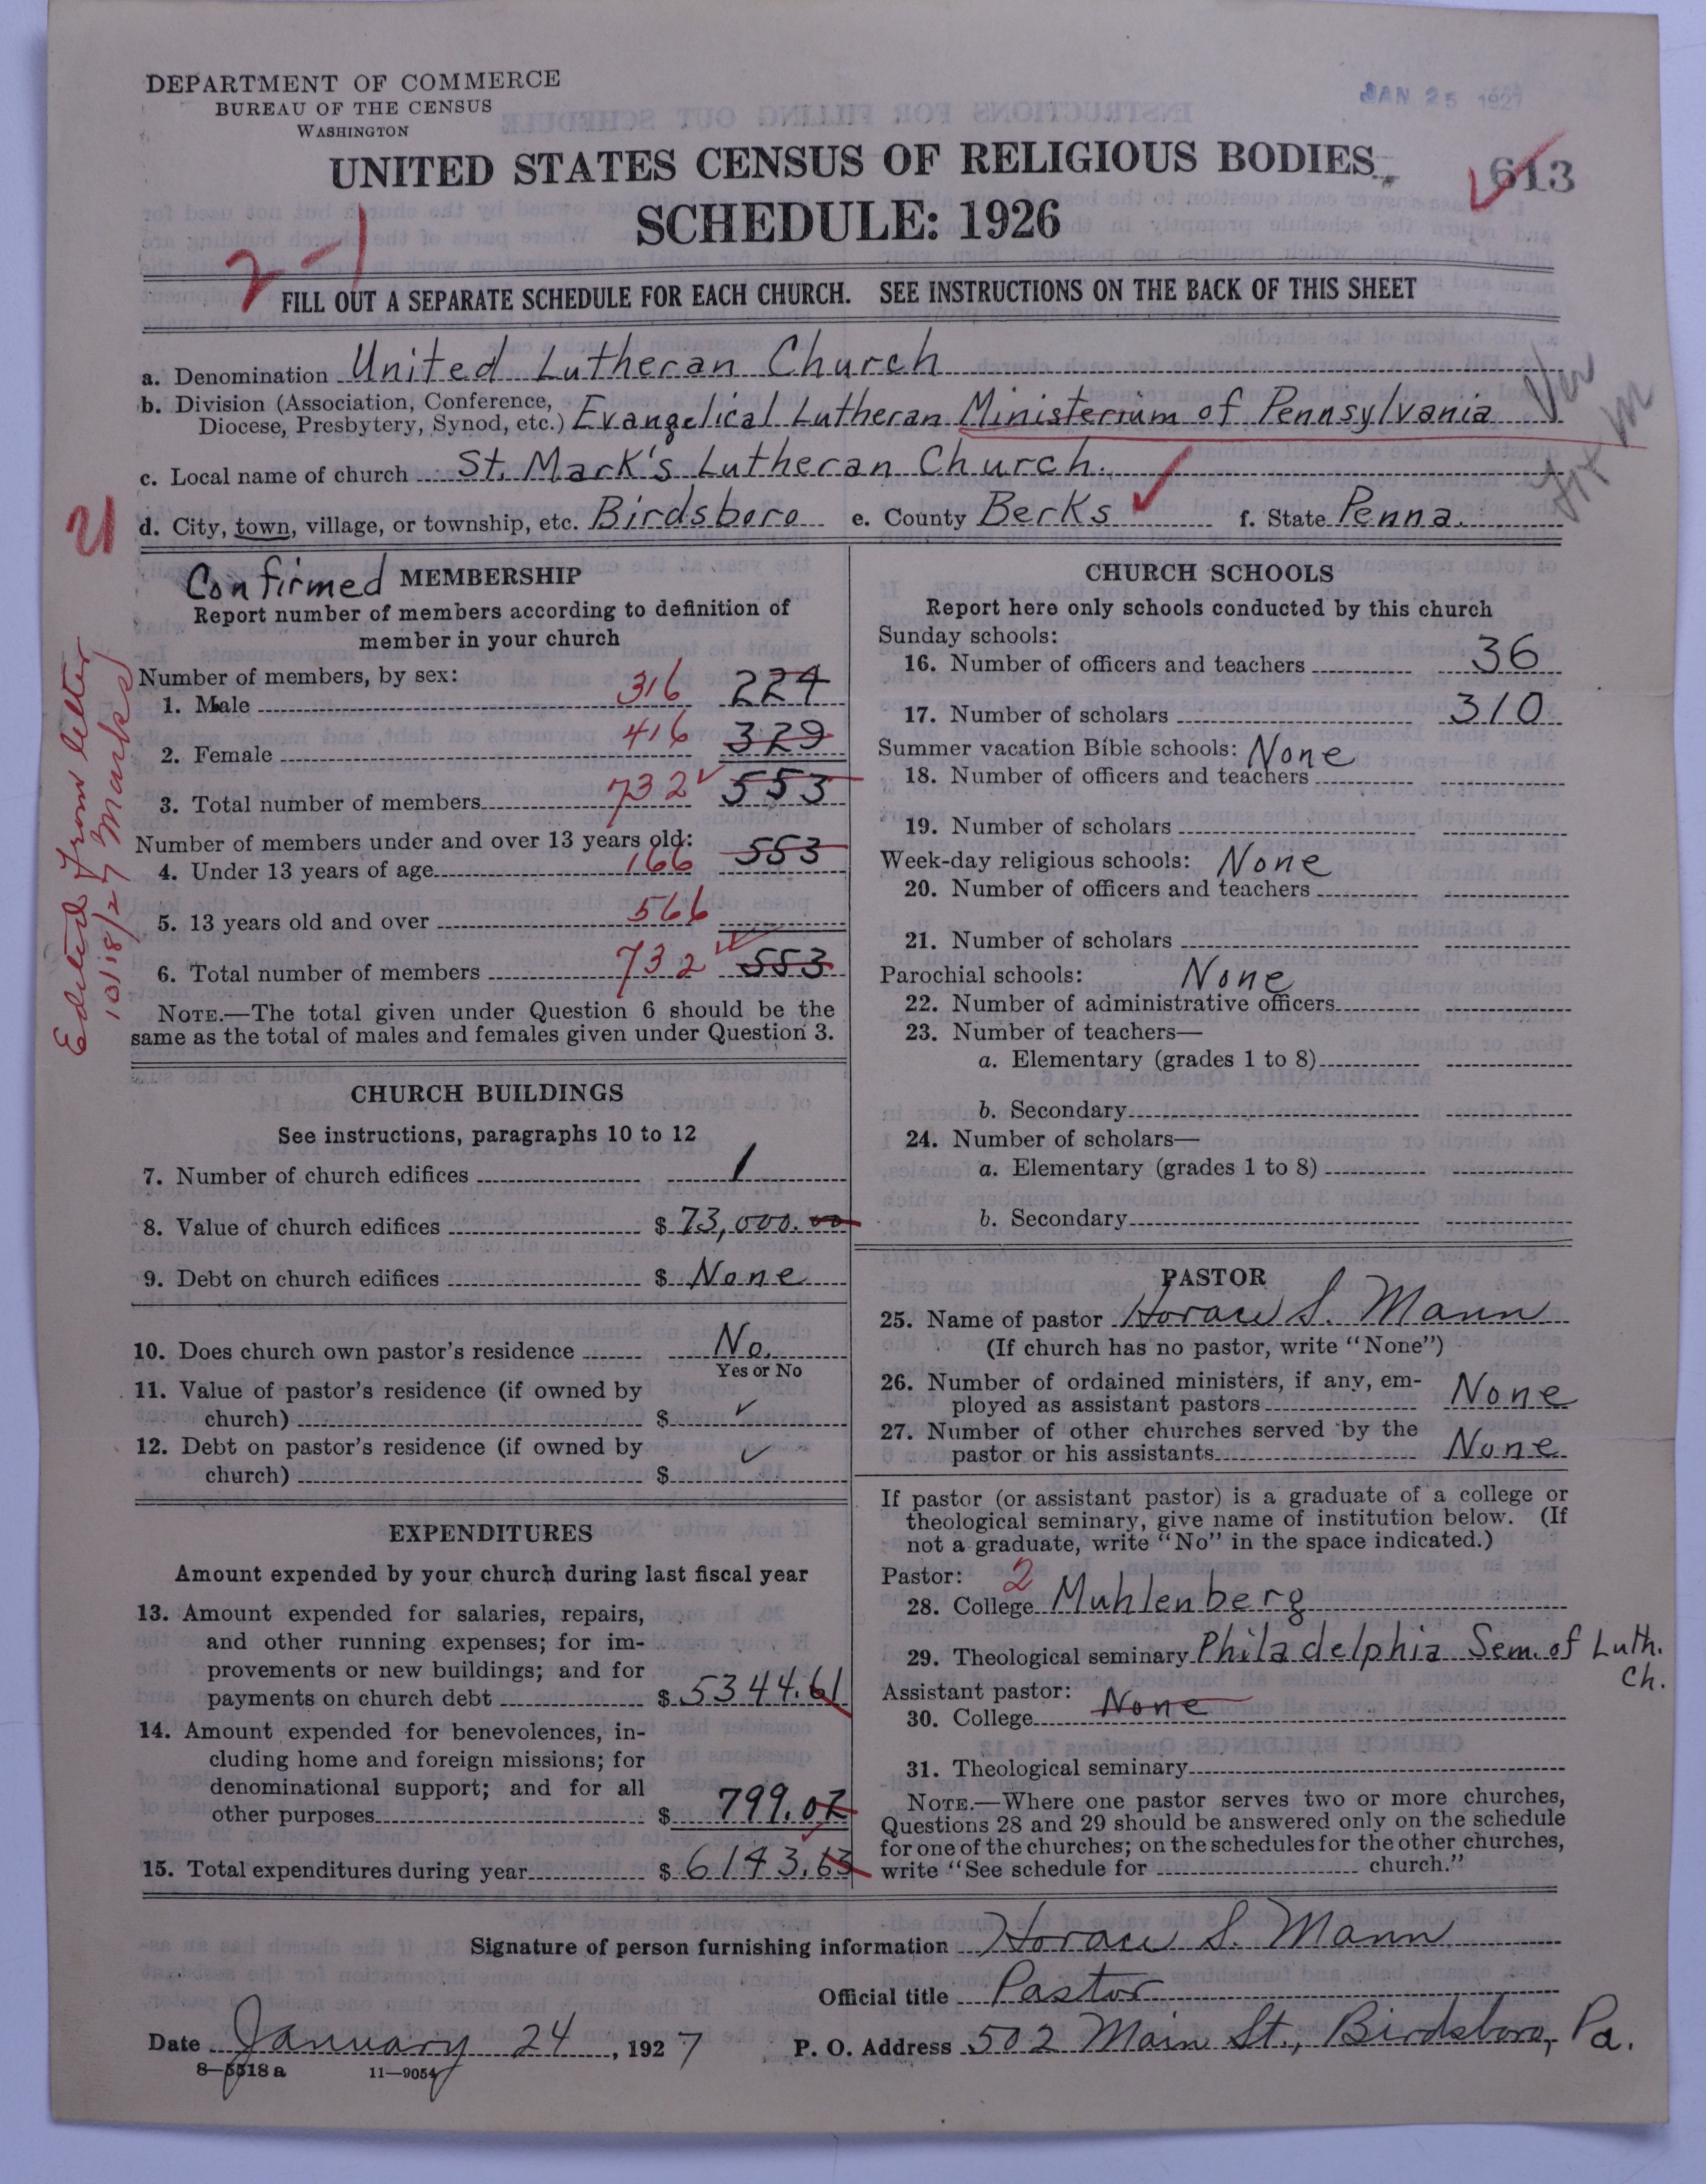 DEPARTMENT OF COMMERCE
BUREAU OF THE CENSUS
WASHINGTON
JAN 25 1927
UNITED STATES CENSUS OF RELIGIOUS BODIES
613
SCHEDULE: 1926
2-1
FILL OUT A SEPARATE SCHEDULE FOR EACH CHURCH. SEE INSTRUCTIONS ON THE BACK OF THIS SHEET
a. Denomination United Lutheran Church
b. Division (Association, Conference, Diocese, Presbytery, Synod, etc.) Evangelical Lutheran Ministerium of Pennsylvania
c. Local name of church St. Mark's Lutheran Church.
21
d. City, town, village, or township, etc. Birdsboro e. County Berks f. State Penna.
Edited from letter
10/18/27 Marks
Confirmed MEMBERSHIP
Report number of members according to definition of
member in your church
Number of members, by sex:
1. Male 316 224
2. Female 416 329
3. Total number of members 732 553
Number of members under and over 13 years old:
4. Under 13 years of age 166 553
5. 13 years old and over 566
6. Total number of members 732 553
NOTE.—The total given under Question 6 should be the
same as the total of males and females given under Question 3.
CHURCH BUILDINGS
See instructions, paragraphs 10 to 12
7. Number of church edifices 1
8. Value of church edifices $ 73,000.00
9. Debt on church edifices $ None
10. Does church own pastor's residence No.
Yes or No
11. Value of pastor's residence (if owned by
church) $
12. Debt on pastor's residence (if owned by
church) $
EXPENDITURES
Amount expended by your church during last fiscal year
13. Amount expended for salaries, repairs,
and other running expenses; for im-
provements or new buildings; and for
payments on church debt $ 5344.61
14. Amount expended for benevolences, in-
cluding home and foreign missions; for
denominational support; and for all
other purposes $ 799.02
15. Total expenditures during year $ 6143.63
CHURCH SCHOOLS
Report here only schools conducted by this church
Sunday schools:
16. Number of officers and teachers 36
17. Number of scholars 310
Summer vacation Bible schools: None
18. Number of officers and teachers
19. Number of scholars
Week-day religious schools: None
20. Number of officers and teachers
21. Number of scholars
Parochial schools: None
22. Number of administrative officers
23. Number of teachers—
a. Elementary (grades 1 to 8)
b. Secondary
24. Number of scholars—
a. Elementary (grades 1 to 8)
b. Secondary
PASTOR
25. Name of pastor Horace S. Mann
(If church has no pastor, write "None")
26. Number of ordained ministers, if any, em-
ployed as assistant pastors None
27. Number of other churches served by the
pastor or his assistants None
If pastor (or assistant pastor) is a graduate of a college or
theological seminary, give name of institution below. (If
not a graduate, write "No" in the space indicated.)
Pastor: 2
28. College Muhlenberg
29. Theological seminary Philadelphia Sem. of Luth.
Ch.
Assistant pastor:
30. College None
31. Theological seminary
NOTE.—Where one pastor serves two or more churches,
Questions 28 and 29 should be answered only on the schedule
for one of the churches; on the schedules for the other churches,
write "See schedule for church."
Signature of person furnishing information Horace S. Mann
Official title Pastor
Date January 24, 1927 P. O. Address 502 Main St., Birdsboro, Pa.
8-5518 a 11-9054